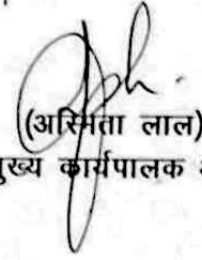 (अस्मिता लाल)
मुख्य कार्यपालक